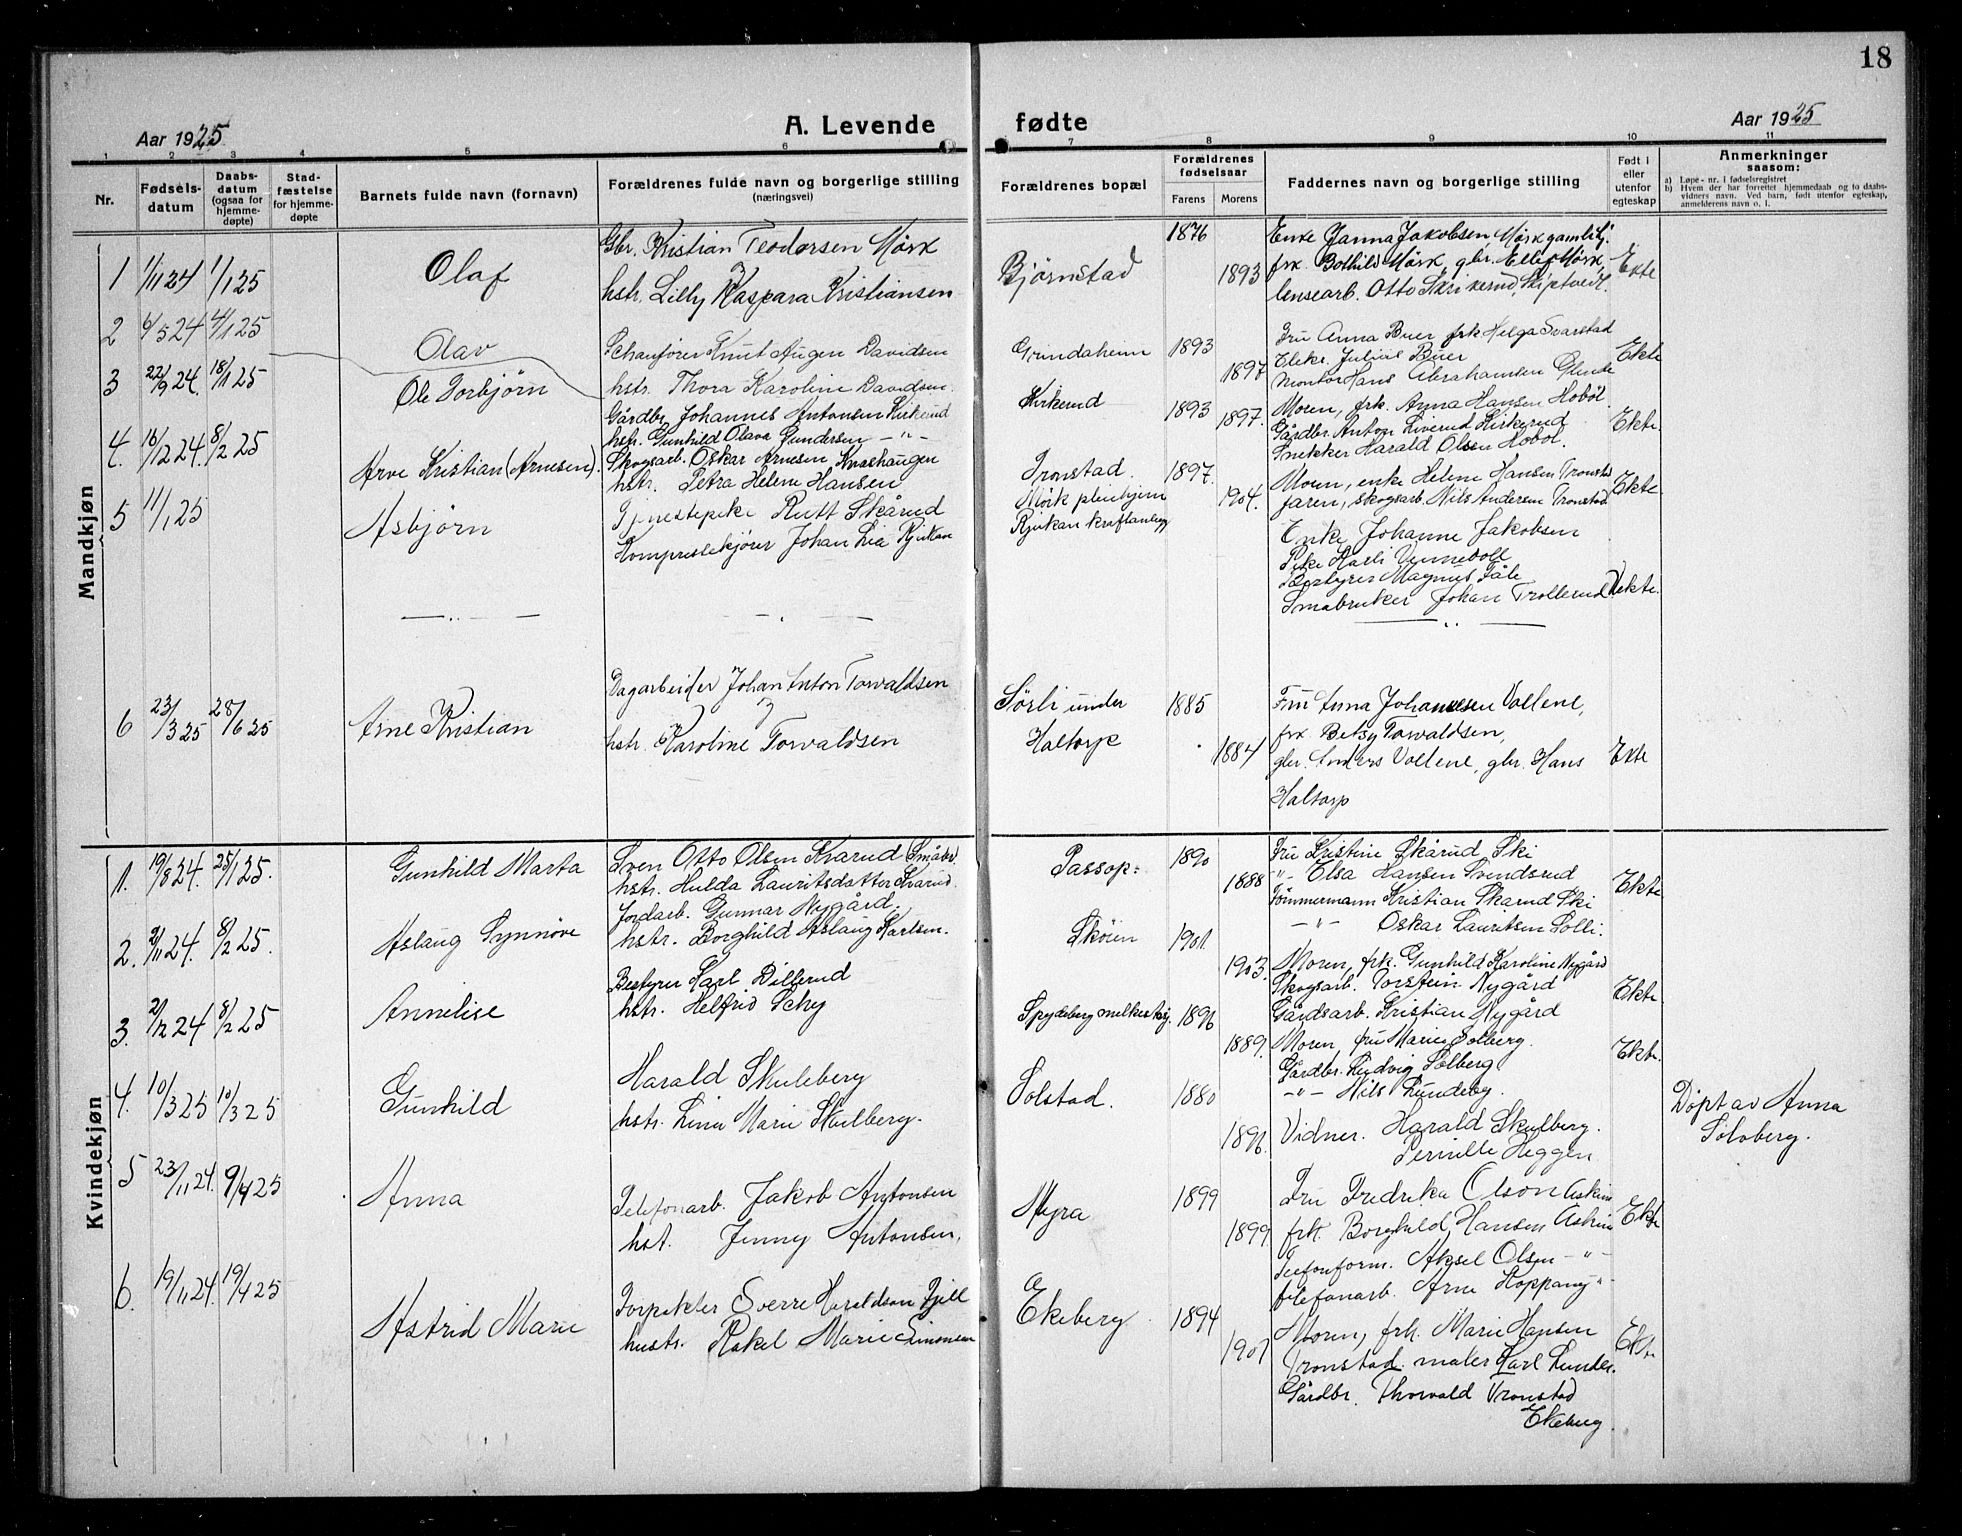 18
Aar 1925
A. Levende fødte
Aar 1925
1 2 3 4 5 6 7 8 9 10 11
Nr.
Fødsels-
datum
Daabs-
datum
(ogsaa for
hjemme-
døpte)
Stad-
fæstelse
for hjemme-
døpte
Barnets fulde navn (fornavn)
Forældrenes fulde navn og borgerlige stilling
(næringsvei)
Forældrenes bopæl
Forældrenes
fødselsaar
Farens Morens
Faddernes navn og borgerlige stilling
Født i
eller
utenfor
egteskap
Anmerkninger
saasom:
a) Løpe-nr. i fødselsregistret
b) Hvem der har forrettet hjemmedaab og to daabs-
vidners navn. Ved barn, født utenfor egteskap,
anmelderens navn o. l.
Mandkjøn
1 1/11 24 1/1 25 Olaf
Gbr. Kristian Teodorsen Mørk
hstr. Lilly Kaspara Kristiansen
Bjørnstad 1876 1893
Enke Janna Jakobsen Mørk gamlehj.
frk. Bothild Mørk, gbr. Ellef Mørk
lensearb. Otto Skrikerud, Skiptvedt.
Ekte
2 6/5 24 4/1 25 Olav
Schauføer Knut Augen Davidsen
hstr. Thora Karoline Davidsen
Grindaheim 1893 1897
Fru Anna Buer frk Helga Svarstad
Elekr. Julius Buer
Montør Hans Abrahamsen Glende
Ekte
3 22/9 24. 18/1 25 Ole Torbjørn
Gårdbr Johannes Antonsen Kirkerud
hstr. Gunhild Olava Gundersen -"-
Kirkerud 1893 1897.
Moren, frk. Anna Hansen Hobøl
Gårdbr. Anton Liverud Kirkerud
Snekker Harald Olsen Hobøl
Ekte
4. 16/12 24. 8/2 25 Arve Kristian (Arnesen).
Skogsarb. Oskar Arnesen, Knashaugen
hstr. Petra Helene Hansen
Tronstad. 1897. 1904.
Moren, enke Helene Hansen Tronstad
faren, skogsarb. Nils Andersen Tronstad
Ekte
5 11/1 25 Asbjørn
Tjenestepike Rutt Skårud
Kompresekjører Johan Lia Rjukan
Mørk pleiehjem
Rjukan kraftanlegg
Enke Johanne Jakobsen
Pike Karli Vennevoll
Bestyrer Magnus Fale
Småbruker Johan Trollerud
Uekte.
— " — — " — — " —
6 23/3 25 28/6 25 Arne Kristian
Dagarbeider Johan Anton Torvaldsen
hstr. Karoline Torvaldsen
Sørli under
Haltorp
1885 1884
Fru Anna Johansen Vollene,
frk Betsy Torvaldsen,
gbr. Anders Vollene, gbr. Hans
Haltorp
Ekte
Kvindekjøn
1. 19/8 24. 25/1 25. Gunhild Marta
Sven Otto Olsen Kvarud Småbr.
hstr. Hulda Lauritsdatter Kvarud.
Passop: 1890 1888
Fru Kristine Skårud Ski
"- Elsa Hansen Svendsrud
Tømmermann Kristian Skarud Ski
-"- Oskar Lauritsen Solli.
Ekte
2. 2/11 24. 8/2 25. Aslaug Synnøve
Jordarb. Gunnar Nygård.
hstr. Borghild Aslaug Karlsen.
Skøien 1901. 1903.
Moren, frk. Gunhild Karoline Nygård
Skogsarb. Torstein Nygård
Gårdsarb. Kristian Nygård
Ekte
3. 2/12 24 8/2 25 Annelise
Bestyrer Karl Dillerud
hstr. Helfrid Schy
Spydeberg melkefabr. 1896 1889.
Moren, fru Marie Solberg.
Gårdbr. Ludvig Solberg
-"- Nils Lundeby.
Ekte.
4. 10/3 25 10/3 25 Gunhild
Harald Skuleberg
hstr. Lina Marie Skulberg.
Solstad. 1880 1896.
Vidner. Harald Skulberg.
Pernille Heggen
Døpt av Anna
Solvberg.
5 23/11 24. 9/4 25 Anna
Telefonarb. Jakob Antonsen
hst. Jenny Antonsen.
Myra 1899 1899
Fru Fredrika Olson Askim
frk. Borghild Hansen Askim
Teefonform. Aksel Olsen -"-
telefonarb. Arne Hoppang -"-
Ekte
6. 19/11 24. 19/4 25 Astrid Marie
Torpekter Sverre Haraldson Fjell
hustr. Rakel Marie Simonsen
Ekeberg 1894 1901
Moren, frk. Marie Hansen
Tronstad. maler Karl Lunder.
Gårdbr. Thorvald Tronstad
Ekeberg.
Ekte